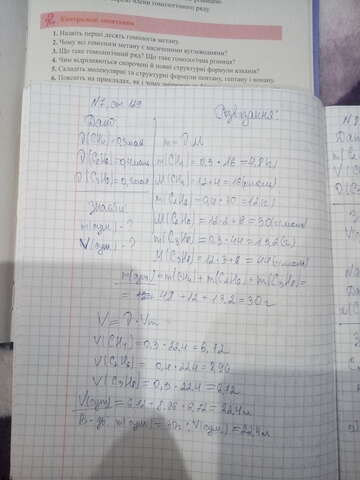 Контрольні запитання
1. Назвіть перші десять гомологів метану.
2. Чому всі гомологи метану є насиченими вуглеводнями?
3. Що таке гомологічний ряд? Що таке гомологічна різниця?
4. Чим відрізняються скорочені й повні структурні формули алканів?
5. Складіть молекулярні та структурні формули пентану, гептану і
6. Поясніть на прикладах, як і чому
№7, ст. 149
Розв'язання:
Дано:
ν(CH₄)=0,3моль
m=ν·M
ν(C₂H₆)=0,4моль
m(CH₄)=0,3·16=4,8(г)
ν(C₃H₈)=0,3моль
M(CH₄)=12+4=16(г/моль)
Знайти:
m(C₂H₆)=0,4·30=12(г)
m(сум)-?
M(C₂H₆)=12·2+6=30(г/моль)
V(сум)-?
m(C₃H₈)=0,3·44=13,2(г)
M(C₃H₈)=12·3+8=44(г/моль)
m(сум)=m(CH₄)+m(C₂H₆)+m(C₃H₈)=
= 4,8+12+13,2=30г
V=ν·Vm
V(CH₄)=0,3·22,4=6,72
V(C₂H₆)=0,4·22,4=8,96
V(C₃H₈)=0,3·22,4=6,72
V(сум)=6,72+8,96+6,72=22,4л
В-дь: m(сум)=30г; V(сум)=22,4л